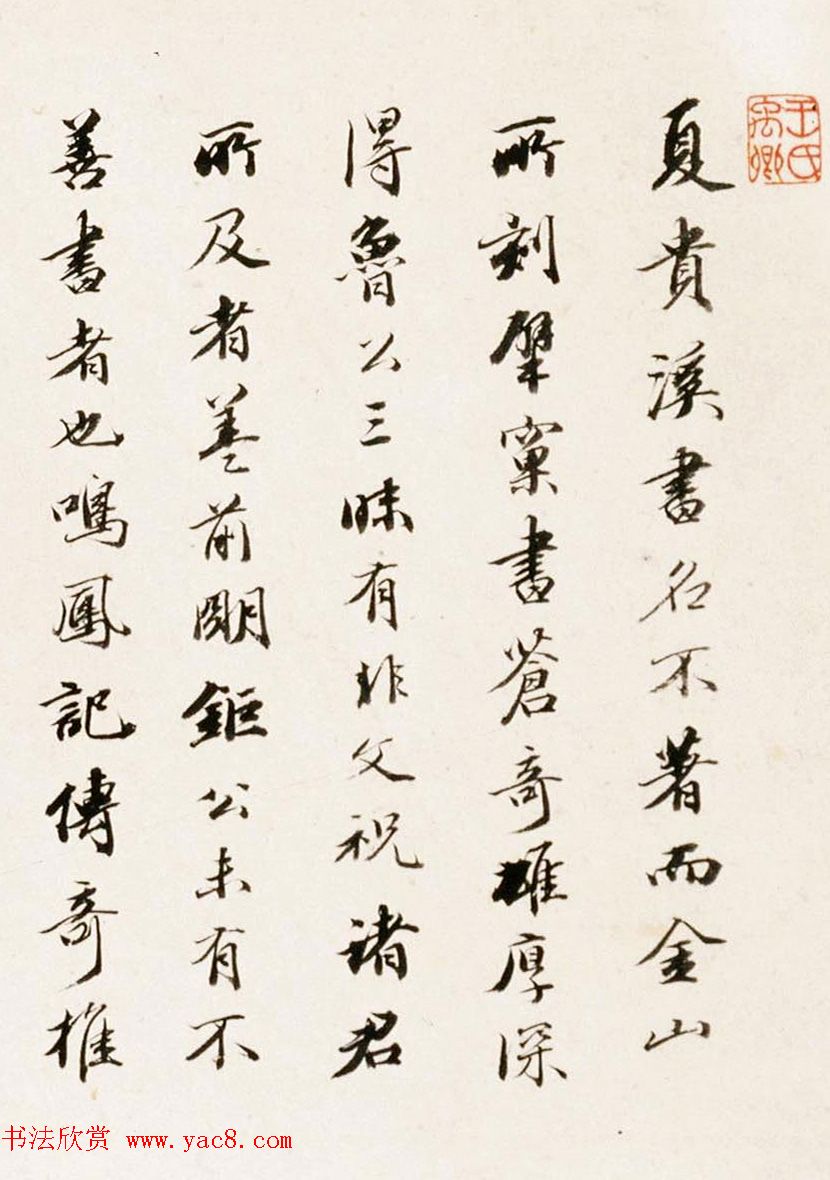 王氏禹卿
夏貴溪書名不著而金山
所刻擘窠書蒼奇雄厚深
得魯公三昧有非文祝諸君
所及者蓋前明鉅公未有不
善書者也鳴鳳記傳奇推
书法欣赏 www.yac8.com